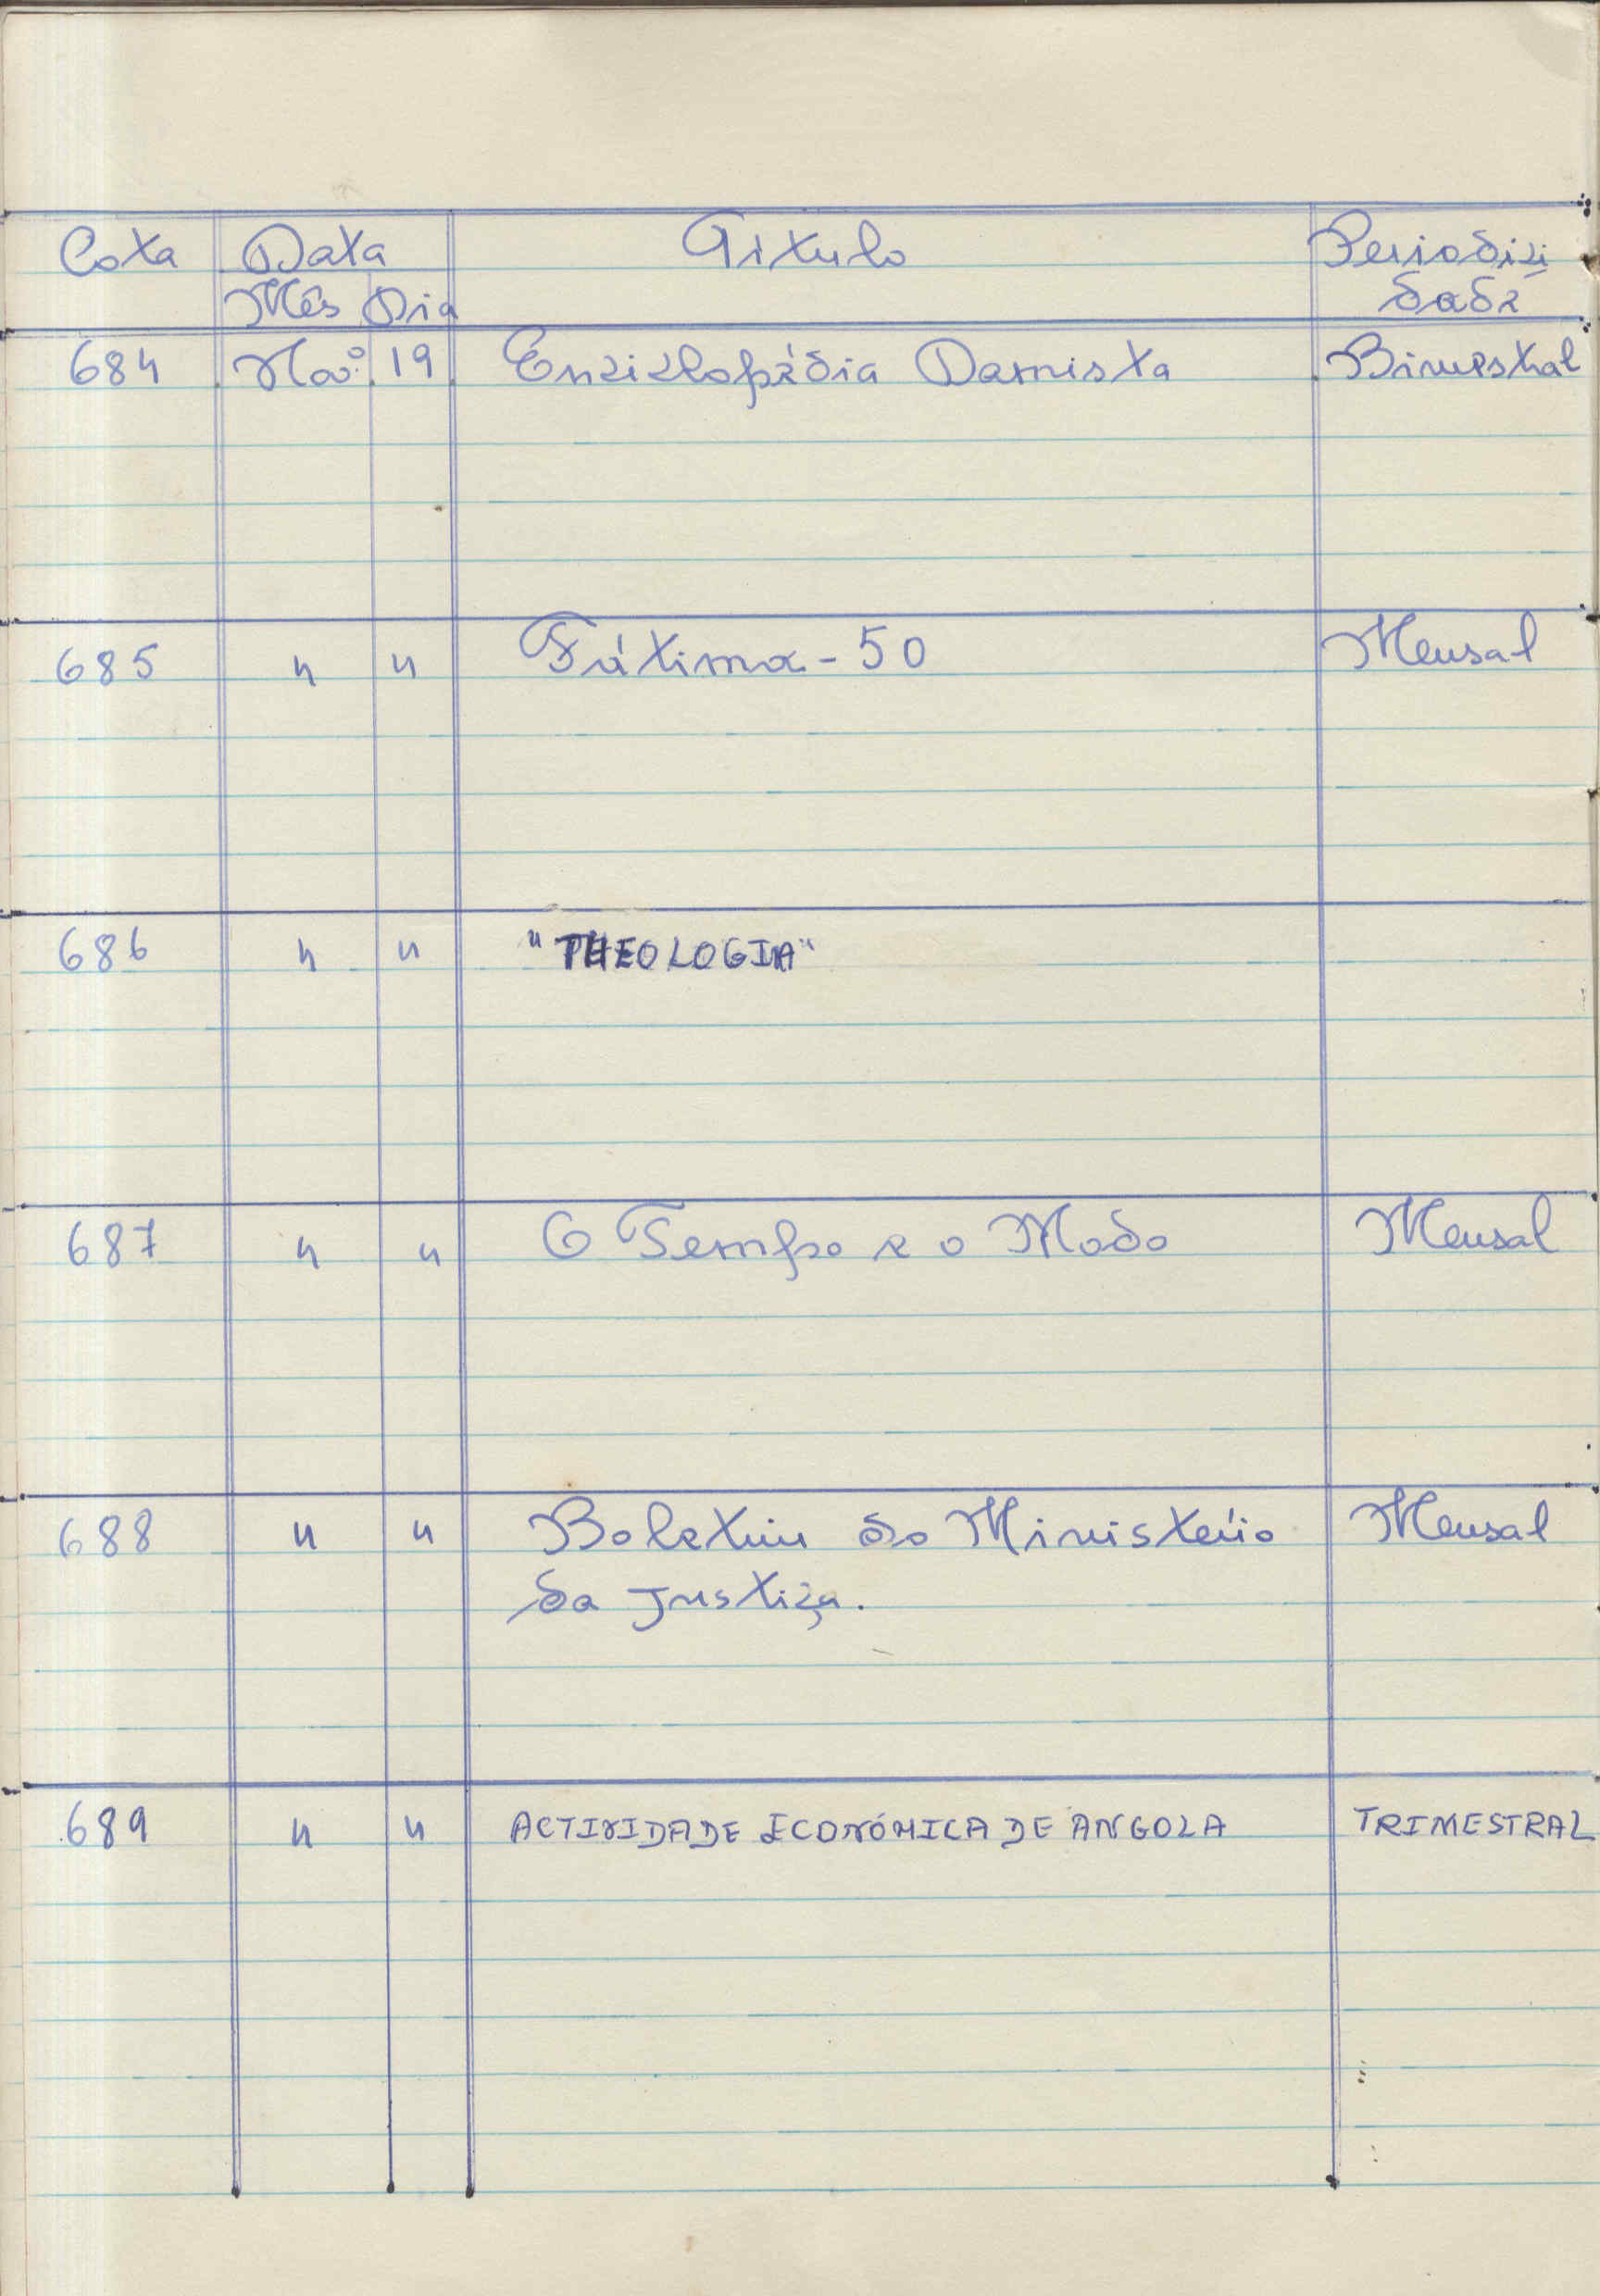 Cota Data Título Periodici
Mês Dia dade
684 Nov.º 19 Enciclopédia Damista Bimestral
685 " " Fátima - 50 Mensal
686 " " "THEOLOGIA"
687 " " O Tempo e o Modo Mensal
688 " " Boletim do Ministério Mensal
da Justiça.
689 " " ACTIVIDADE ECONÓMICA DE ANGOLA TRIMESTRAL